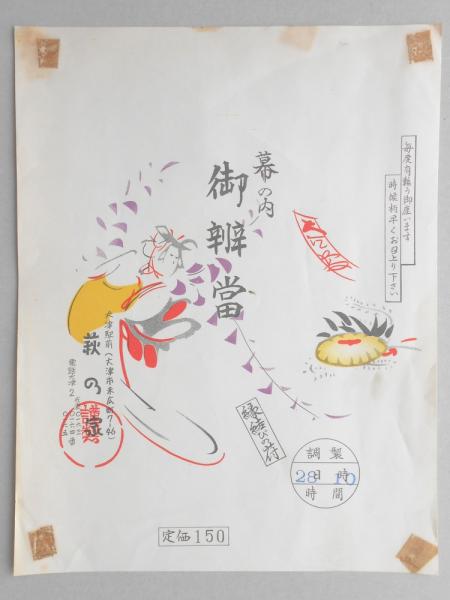 毎度有難う御座います
時候柄早くお召上り下さい
幕の内
御辨當
縁結びのミ付
大津駅前(大津市末広町7-46)
萩の家
電話大津2
調製
28日10時
時間
定価150